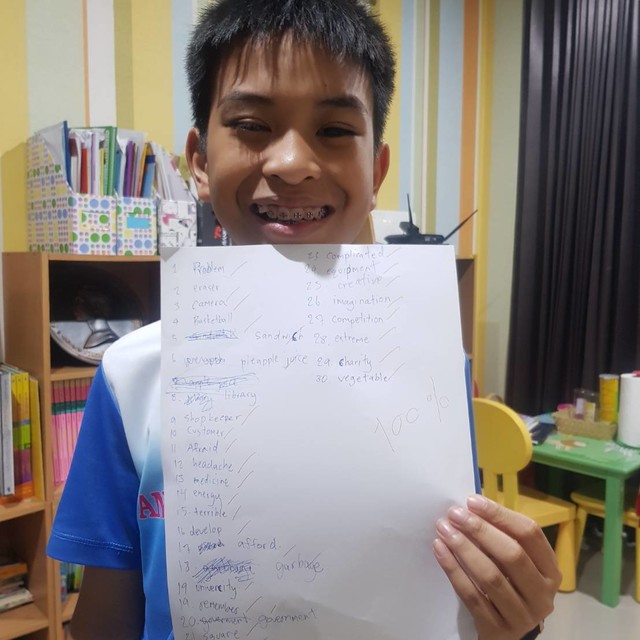 1 Problem
2 crawl
3 camera
4 Basketball
5 sandwich
6 pieapple juice
8 library
9 shopkeeper
10 customer
11 afraid
12 headache
13 medicine
14 energy
15 terrible
16 develop
17 afford
18 garbage
19 University
19 remember
20 government
21 square
23 complicated
24 equipment
25 creative
26 imagination
27 competition
28 extreme
29 charity
30 vegetable
100%
AN